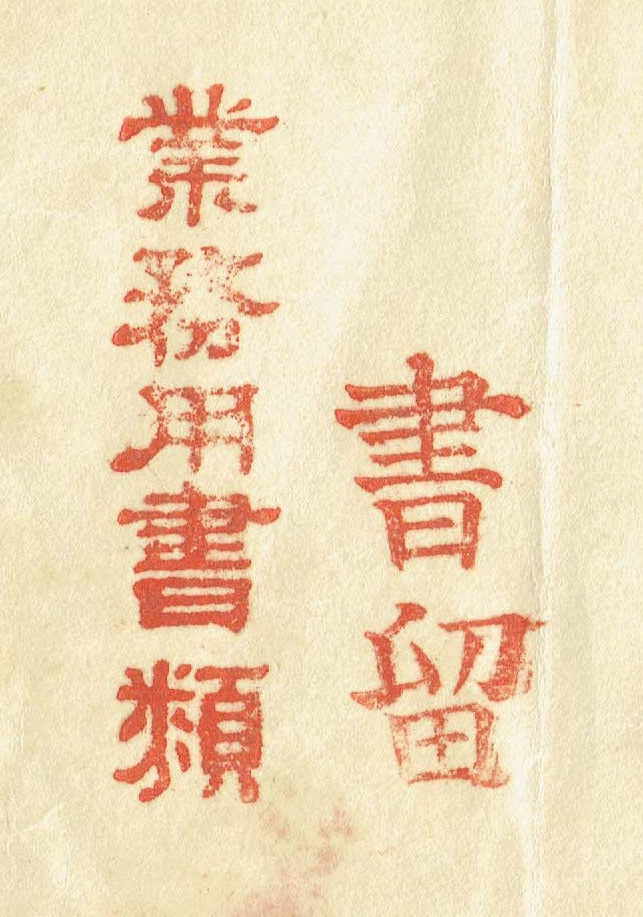 書留
業務用書類